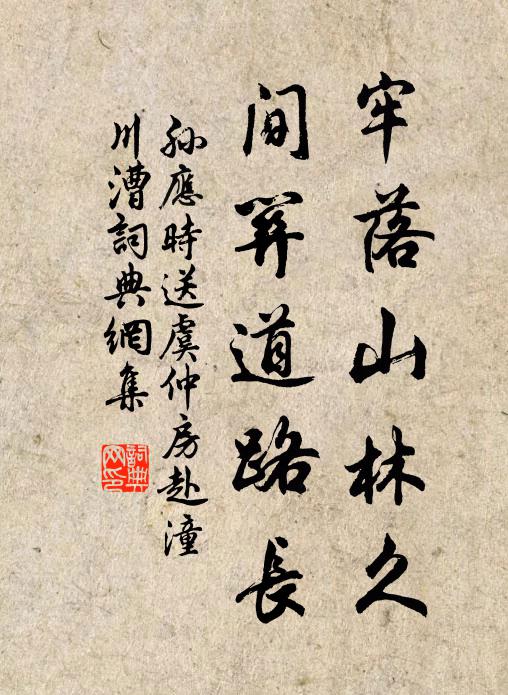 牢落山林久
間關道路長
孫應時送虞仲房赴潼
川漕詞典網集
詞典
网印